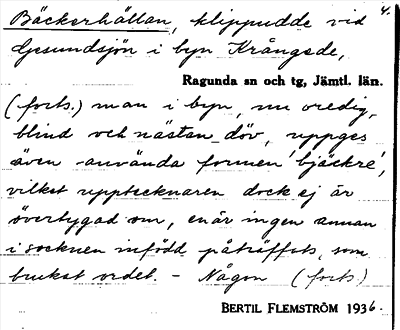 4.
Bäckerhällan, klippudde vid
Gesundsjön i byn Krångede,
Ragunda sn och tg, Jämtl. län.
(forts.) man i byn, nu oredig,
blind och nästan döv, uppges
även använda formen 'bjäckre',
vilket upptecknaren dock ej är
övertygad om, enär ingen annan
i socknen infödd påträffats, som
brukat ordet. - Någon (forts)
BERTIL FLEMSTRÖM 1936.